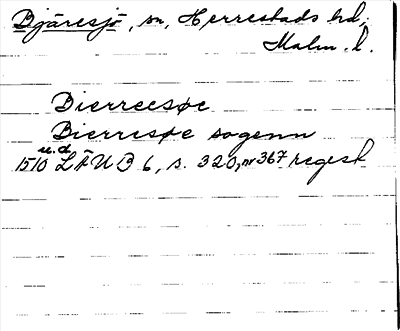 Bjäresjö, sn, Herrestads hd,
Malm. l.
Dierreesøe
Bierresøe sogenn
u.d.
1510 LÄUB 6, s. 320, nr 367 regest